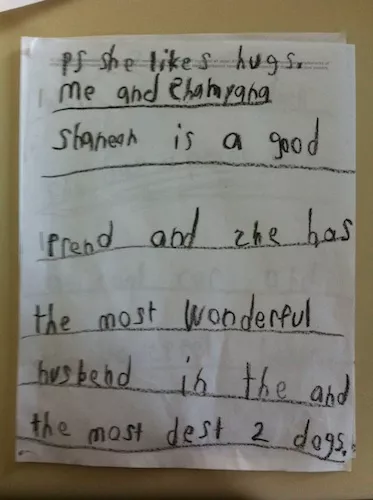 ps she likes hugs.
me and Champang
Shaneah is a good
prend and zhe has
the most wonderful
husbend in the and
the most dest 2 dogs.